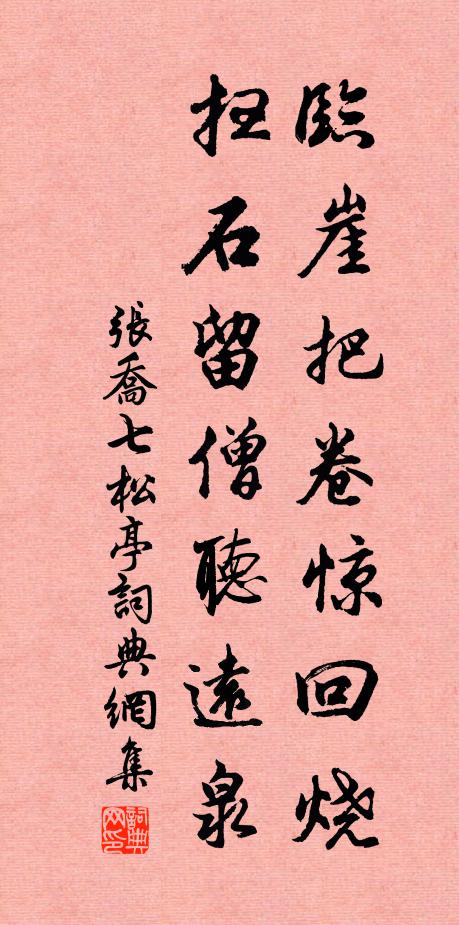 臨崖把卷惊回烧
扫石留僧聽遠泉
張喬七松亭詞典網集
詞典网印